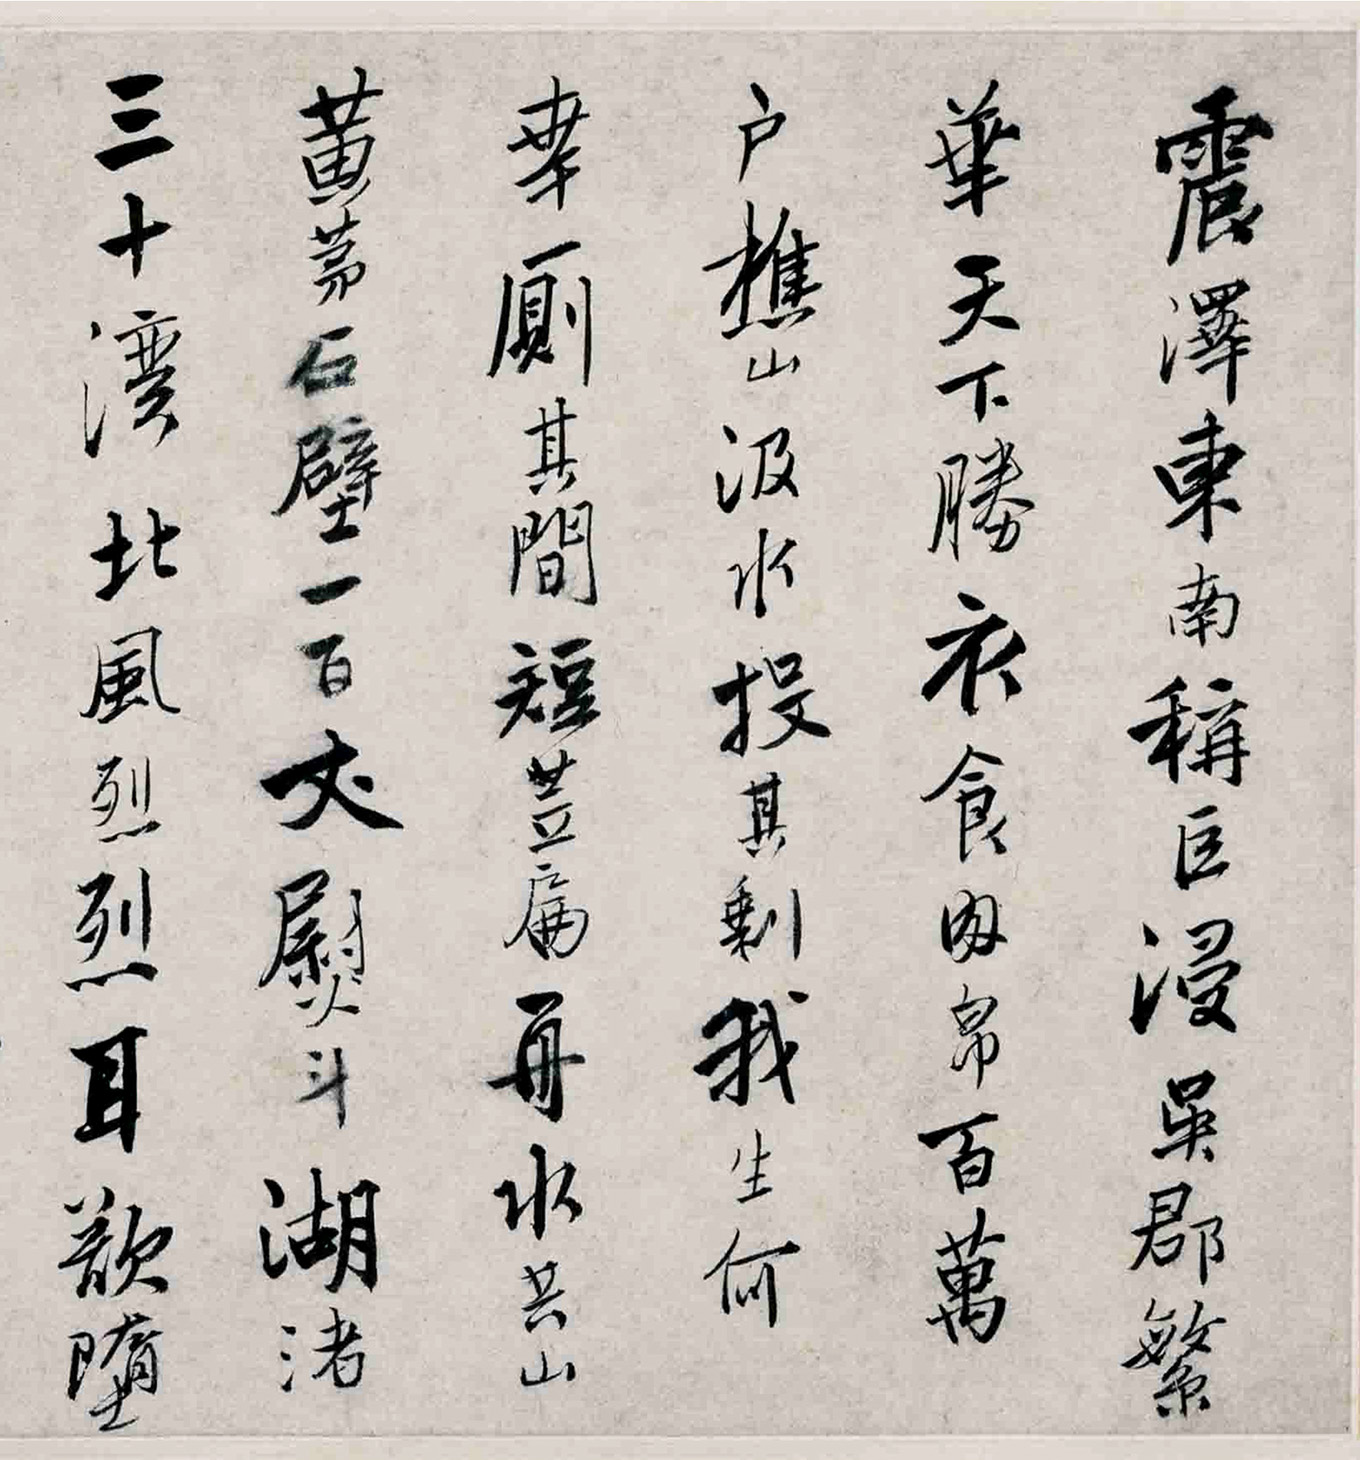 震澤東南稱巨浸吳郡繁
華天下勝衣食肉帛百萬
户樵山汲水投其剩我生何
幸厠其間短簦扁舟水共山
黄茅石壁一百丈熨斗湖渚
三十湾北風烈烈耳欲墮